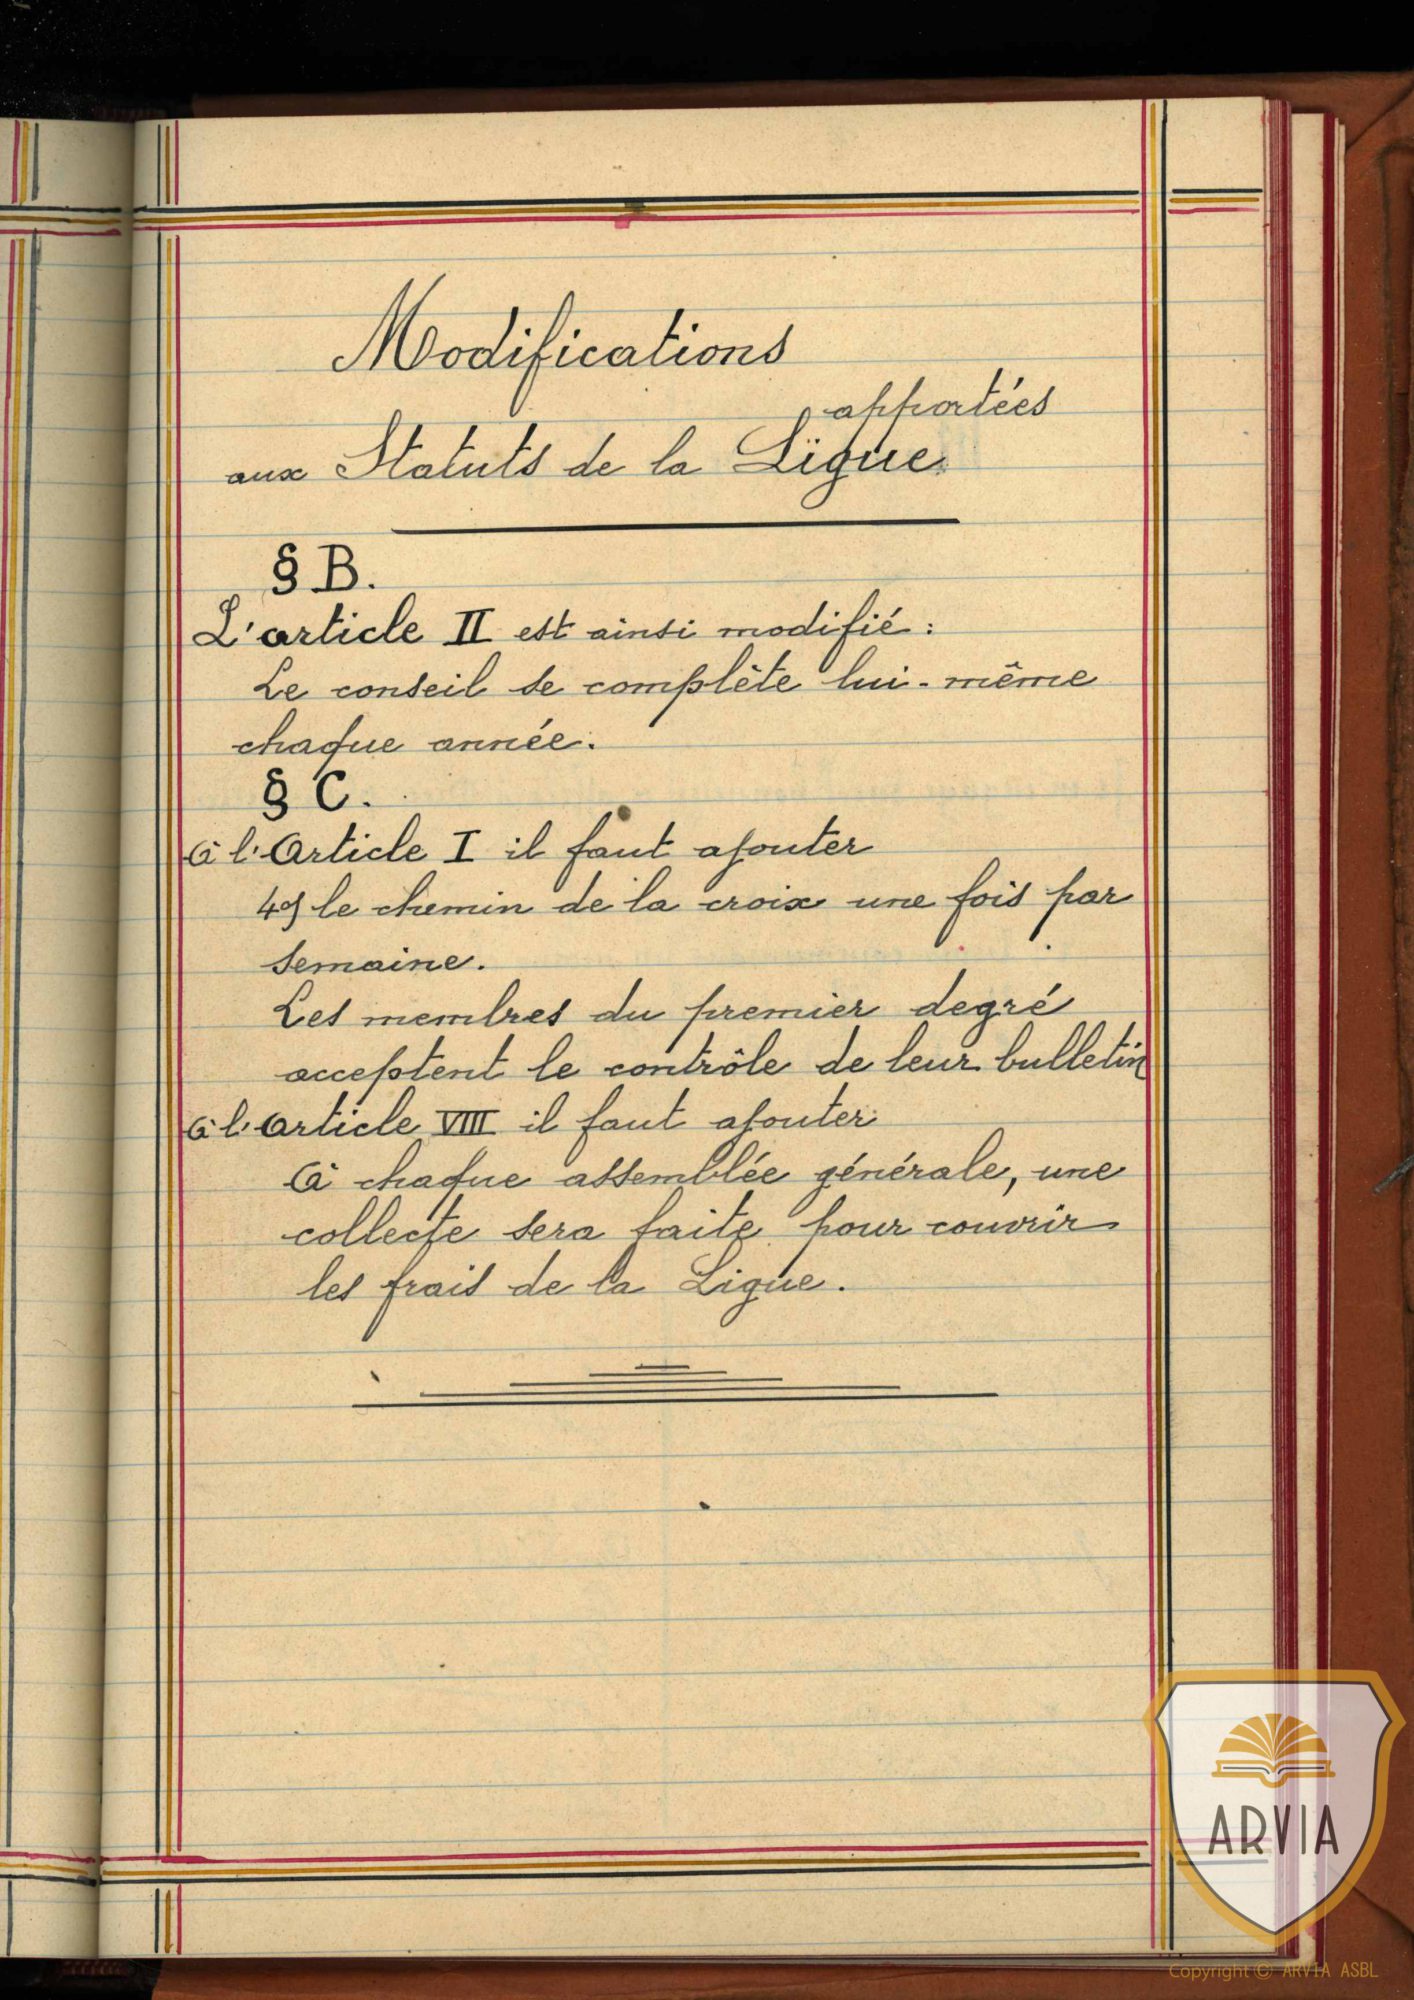 Modifications
apportées
aux Statuts de la Ligue.
§ B.
L'article II est ainsi modifié :
Le conseil se complète lui-même
chaque année.
§ C.
à l'Article I il faut ajouter
4°) le chemin de la croix une fois par
semaine.
Les membres du premier degré
acceptent le contrôle de leur bulletin
à l'article VIII il faut ajouter
à chaque assemblée générale, une
collecte sera faite pour couvrir
les frais de la Ligue.
ARVIA
Copyright © ARVIA ASBL